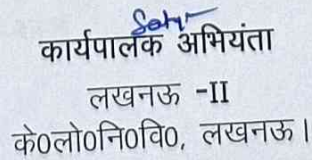 कार्यपालक अभियंता
लखनऊ -II
के०लो०नि०वि०, लखनऊ।